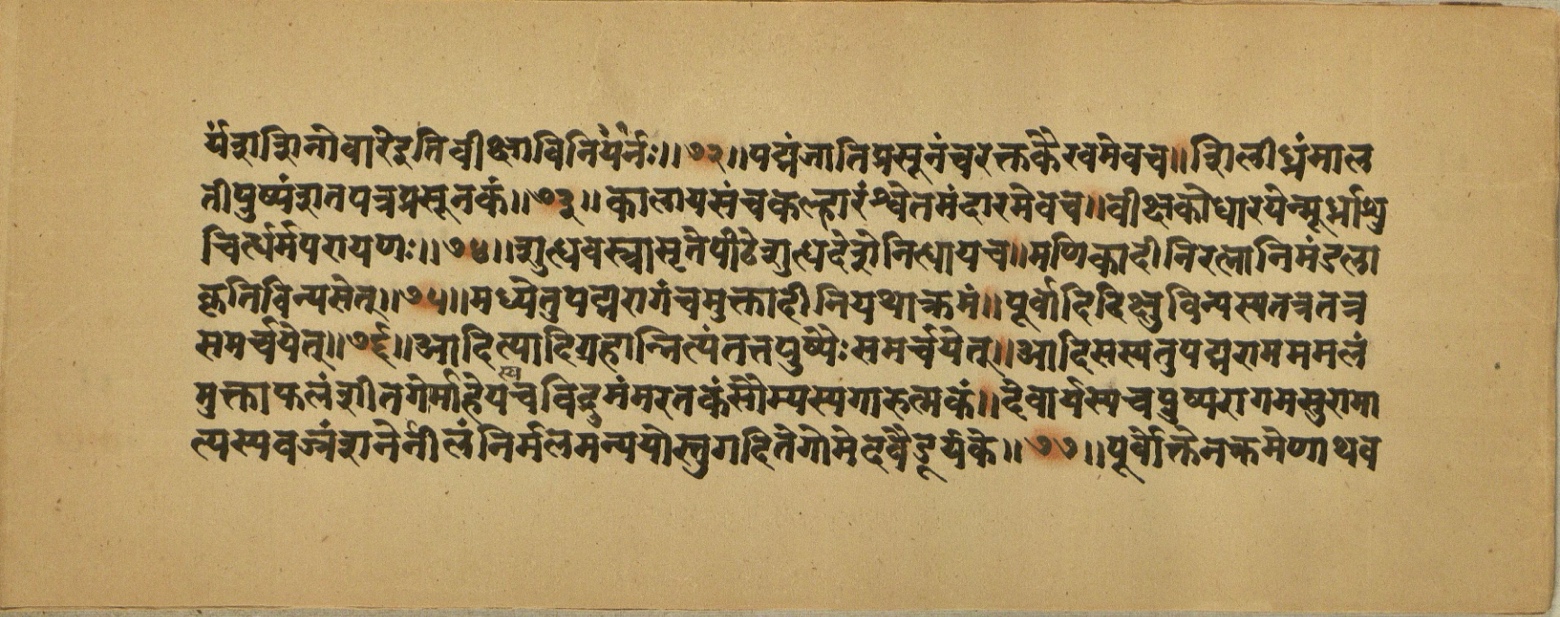 र्यशशिनोवारेद्रतिवीक्ष्णविनिर्यर्नः॥७२॥पद्मंजातिप्रसूनंचरक्तकैरवमेवच॥शिलीध्रंमाल
तीपुष्पंशतपत्रप्रसूनकं॥७३॥कालायसंचकल्हारंश्वेतमंदारमेवच॥वीक्ष्णकोधारयेन्मूर्ध्नाशु
चिर्त्धर्मपरायणः॥७४॥शुत्धवस्त्रासृतेपीठेशुत्धदेशेनिधायच॥मणिकादीनिरत्नानिमंडला
कृतिविन्यसेत्॥७५॥मध्येतुपद्मरागंचमुक्तादीनियथाक्रमं॥पूर्वादिदिक्षुविन्यस्यतत्रतत्र
समर्चयेत्॥७६॥आदित्यादिग्रहान्नित्यंतत्तपुष्पैःसमर्चयेत्॥आदिसस्यतुपद्मरामममलं
मुक्ताफलंशीतगोर्माहेयस्यचविद्रुमंमरतकंसौम्यस्यगारुत्मकं॥देवार्यस्यचपुष्परागमसुरामा
त्यस्यवज्रंशनेर्नीलंनिर्मलमन्ययोस्तुगदितेगोमेदवैडूर्यके॥७७॥पूर्वोक्तेनक्रमेणाथव